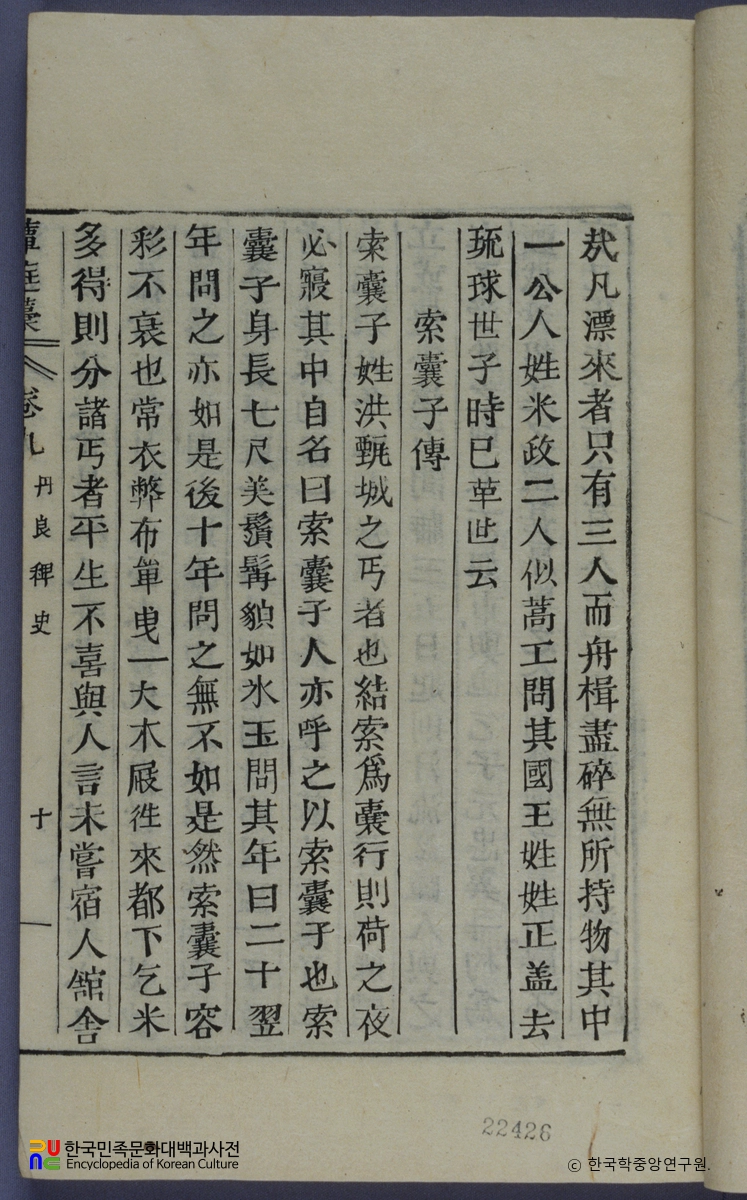 哉凡漂來者只有三人而舟楫盡碎無所持物其中
一公人姓米政二人似蒿工問其國王姓姓正盖去
琉球世子時已革世云
索囊子傳
索囊子姓洪甄城之丐者也結索爲囊行則荷之夜
必寢其中自名曰索囊子人亦呼之以索囊子也索
囊子身長七尺美鬚髯貌如氷玉問其年曰二十翌
年問之亦如是後十年問之無不如是然索囊子容
彩不衰也常衣弊布単曳一大木屐徃來都下乞米
多得則分諸丐者平生不喜與人言未嘗宿人舘舍
藫庭藁 卷九 丹良稗史 十
22426
한국민족문화대백과사전
Encyclopedia of Korean Culture
© 한국학중앙연구원.